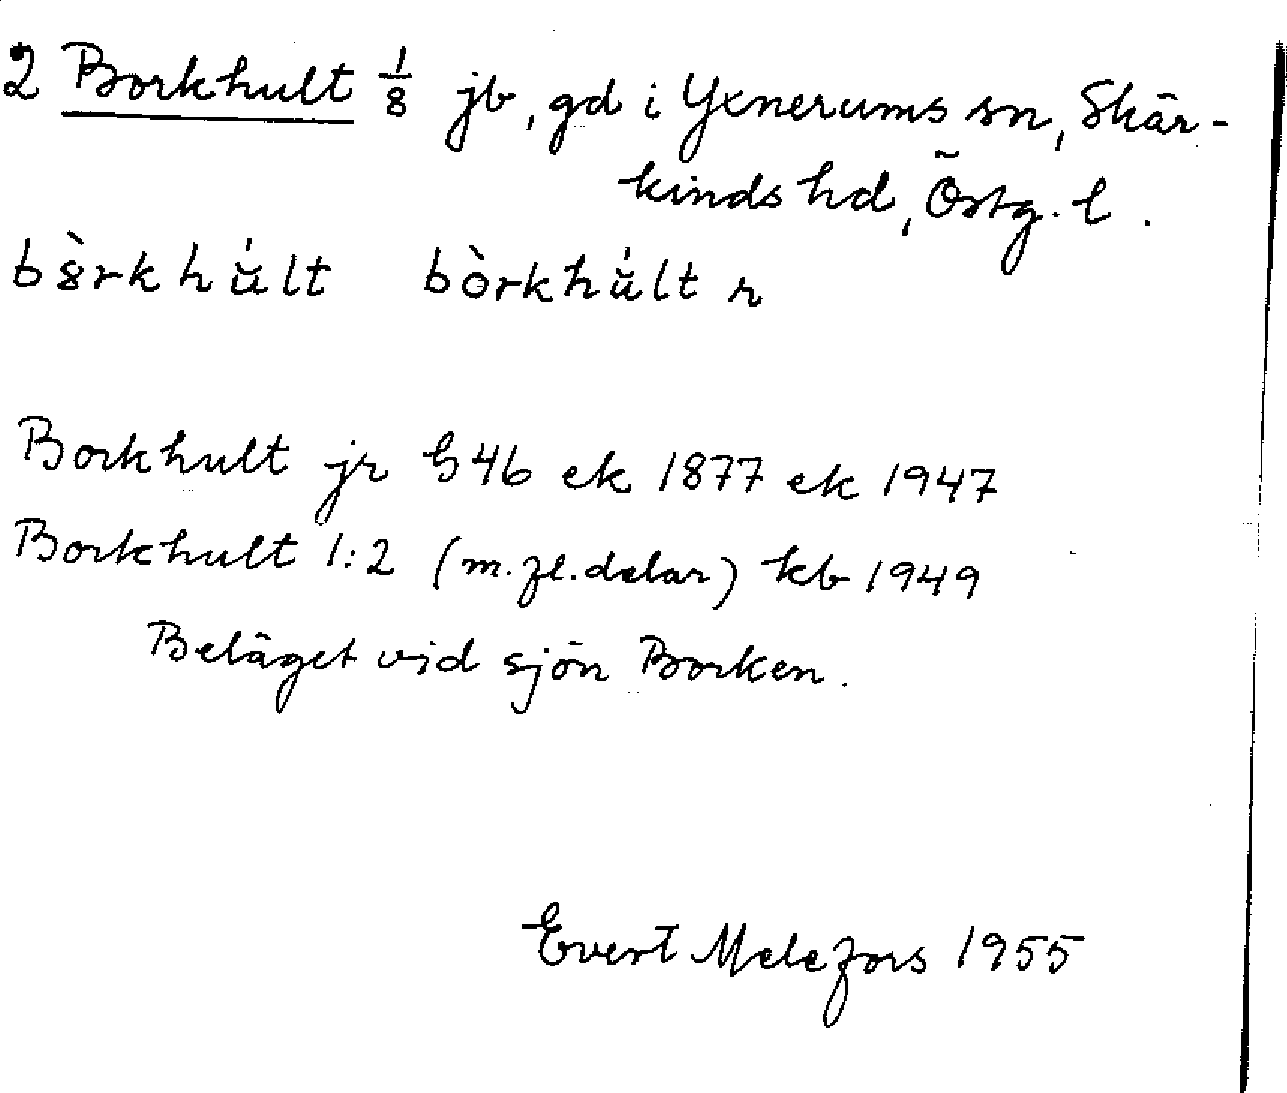 2 Borkhult 1/8 jb, gd i Yxnerums sn, Skär-
kinds hd, Östg. l.
bòrkhu̇̆lt n
Borkhult jr § 46 ek 1877 ek 1947
Borkhult 1:2 (m.fl. delar) kb 1949
Beläget vid sjön Borken.
Evert Melefors 1955